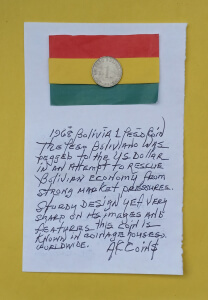 1968 Bolivia 1 Peso Coin
The Peso Boliviano was
pegged to the US Dollar
in an attempt to rescue
Bolivian economy from
strong market pressures.
Sturdy design yet very
sharp on its images and
feathers this coin is
known in coinage houses
worldwide.
AK Coin$